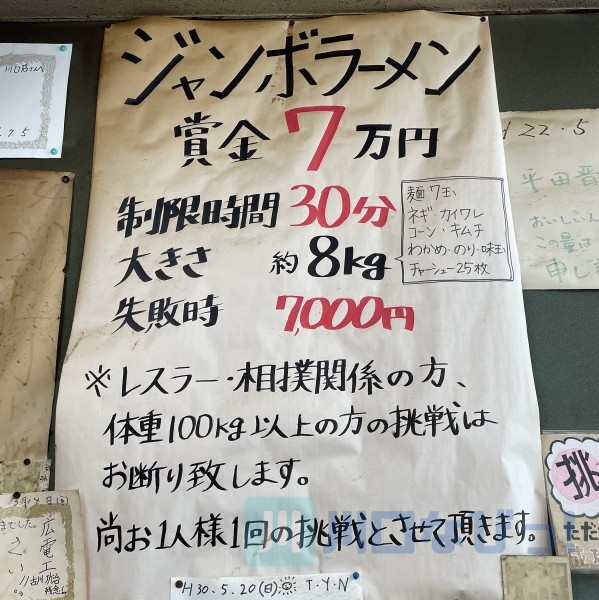 ジャンボラーメン
賞金7万円
制限時間 30分
大きさ 約8kg
麺7玉
ネギ・カイワレ
コーン・キムチ
わかめ・のり・味玉
チャーシュー25枚
失敗時 7,000円
※レスラー・相撲関係の方、
体重100kg以上の方の挑戦は
お断り致します。
尚お1人様1回の挑戦とさせて頂きます。
H30.5.20(日) T.Y.N
.7.5
H22.5
平田晋
おいしい
この量は
申し
挑
ただ
3月14日
広電工